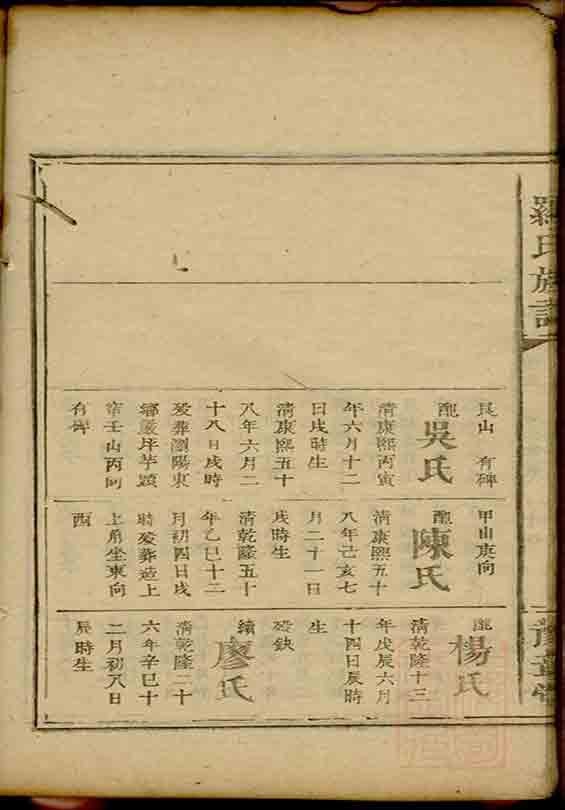 羅氏族譜
豫章堂
艮山 有碑
配吳氏
清康熙丙寅
年六月十二
日戌時生
清康熙五十
八年六月二
十八日戌時
歿葬瀏陽東
鄉嚴坪芋頭
壬山丙向
有碑
甲山庚向
配陳氏
清康熙五十
八年己亥七
月二十一日
戌時生
清乾隆五十
年乙巳十二
月初四日戌
時歿葬造上
上角坐東向
西
配楊氏
清乾隆十三
年戊辰六月
十四日辰時
生
歿缺
續廖氏
清乾隆二十
六年辛巳十
二月初八日
辰時生